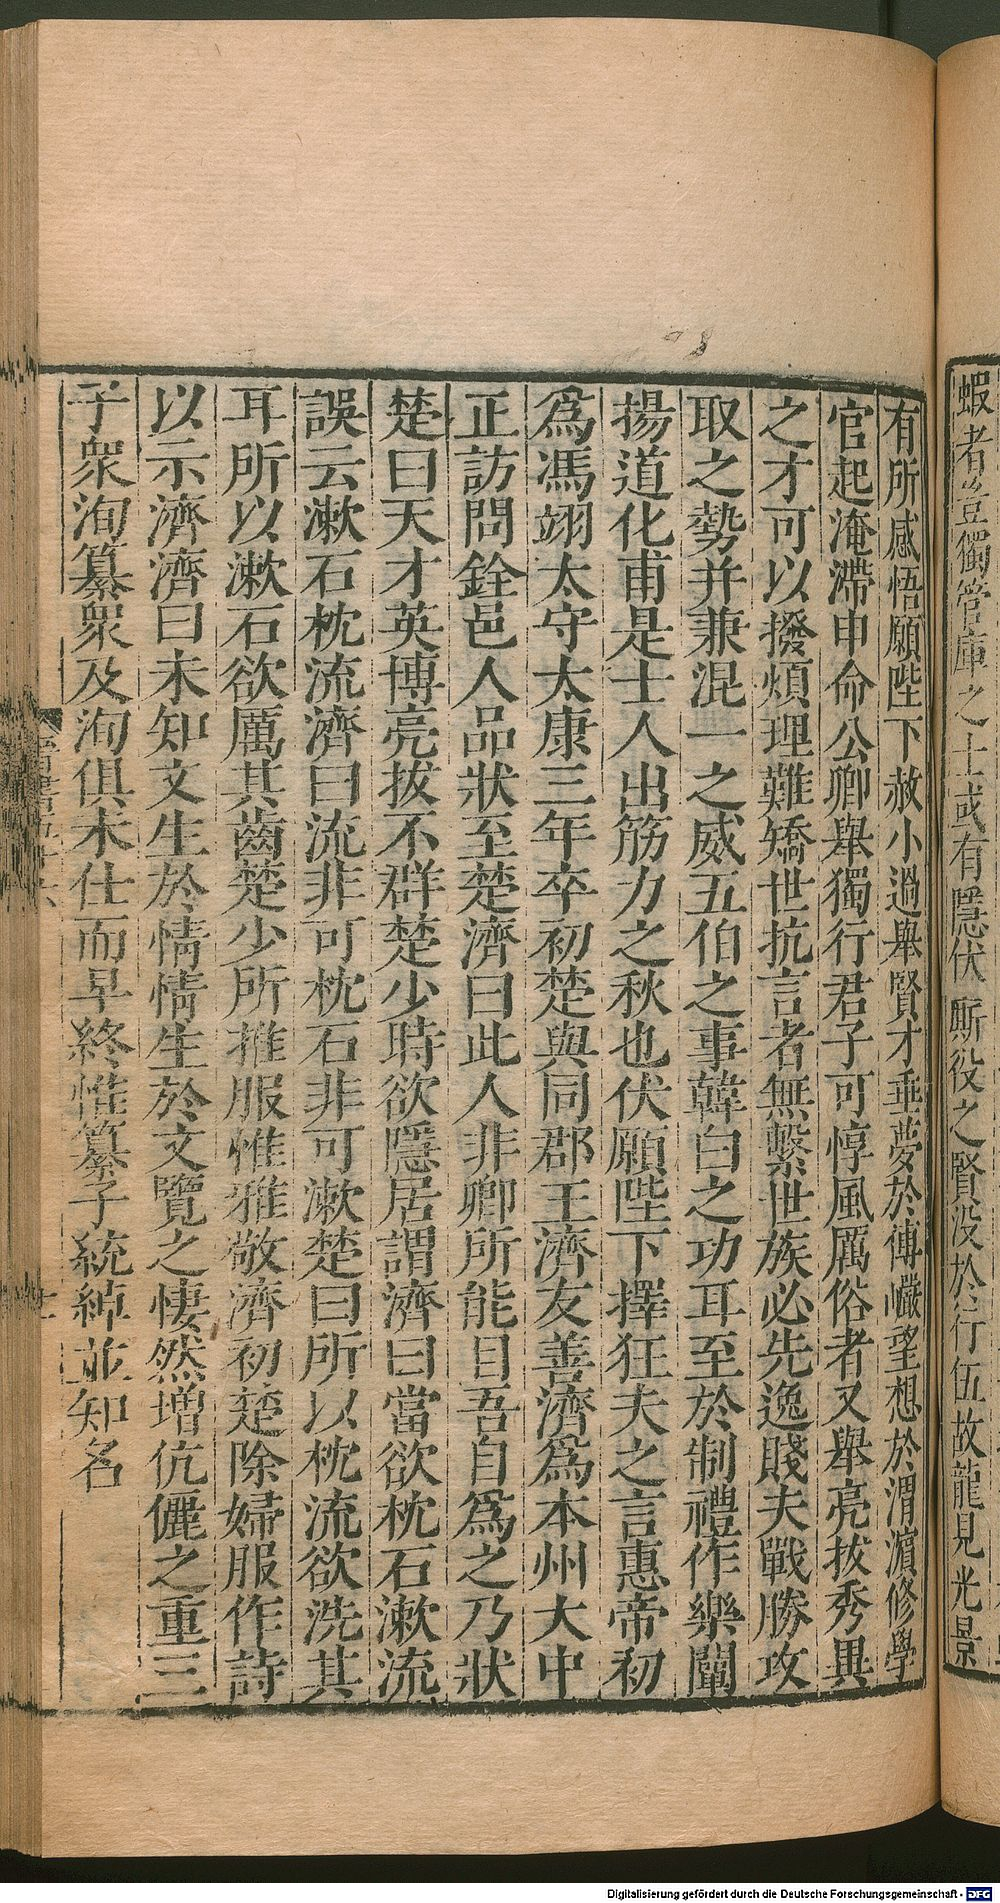 蝦者豈獨管庫之士或有隱伏厮役之賢没於行伍故龍見光景
有所感悟願陛下赦小過舉賢才垂夢於傅巖望想於渭濵修學
官起淹滯申命公卿舉獨行君子可惇風厲俗者又舉亮拔秀異
之才可以撥煩理難矯世抗言者無繫世族必先逸賤夫戰勝攻
取之勢并兼混一之威五伯之事韓白之功耳至於制禮作樂闡
揚道化甫是士人出筋力之秋也伏願陛下擇狂夫之言惠帝初
爲馮翊太守太康三年卒初楚與同郡王濟友善濟爲本州大中
正訪問銓邑人品狀至楚濟曰此人非卿所能目吾自爲之乃狀
楚曰天才英博亮拔不群楚少時欲隱居謂濟曰當欲枕石漱流
誤云漱石枕流濟曰流非可枕石非可漱楚曰所以枕流欲洗其
耳所以漱石欲厲其齒楚少所推服惟雅敬濟初楚除婦服作詩
以示濟濟曰未知文生於情情生於文覽之悽然增伉儷之重三
子衆洵纂衆及洵俱未仕而早終惟纂子統綽並知名
Digitalisierung gefördert durch die Deutsche Forschungsgemeinschaft - DFG